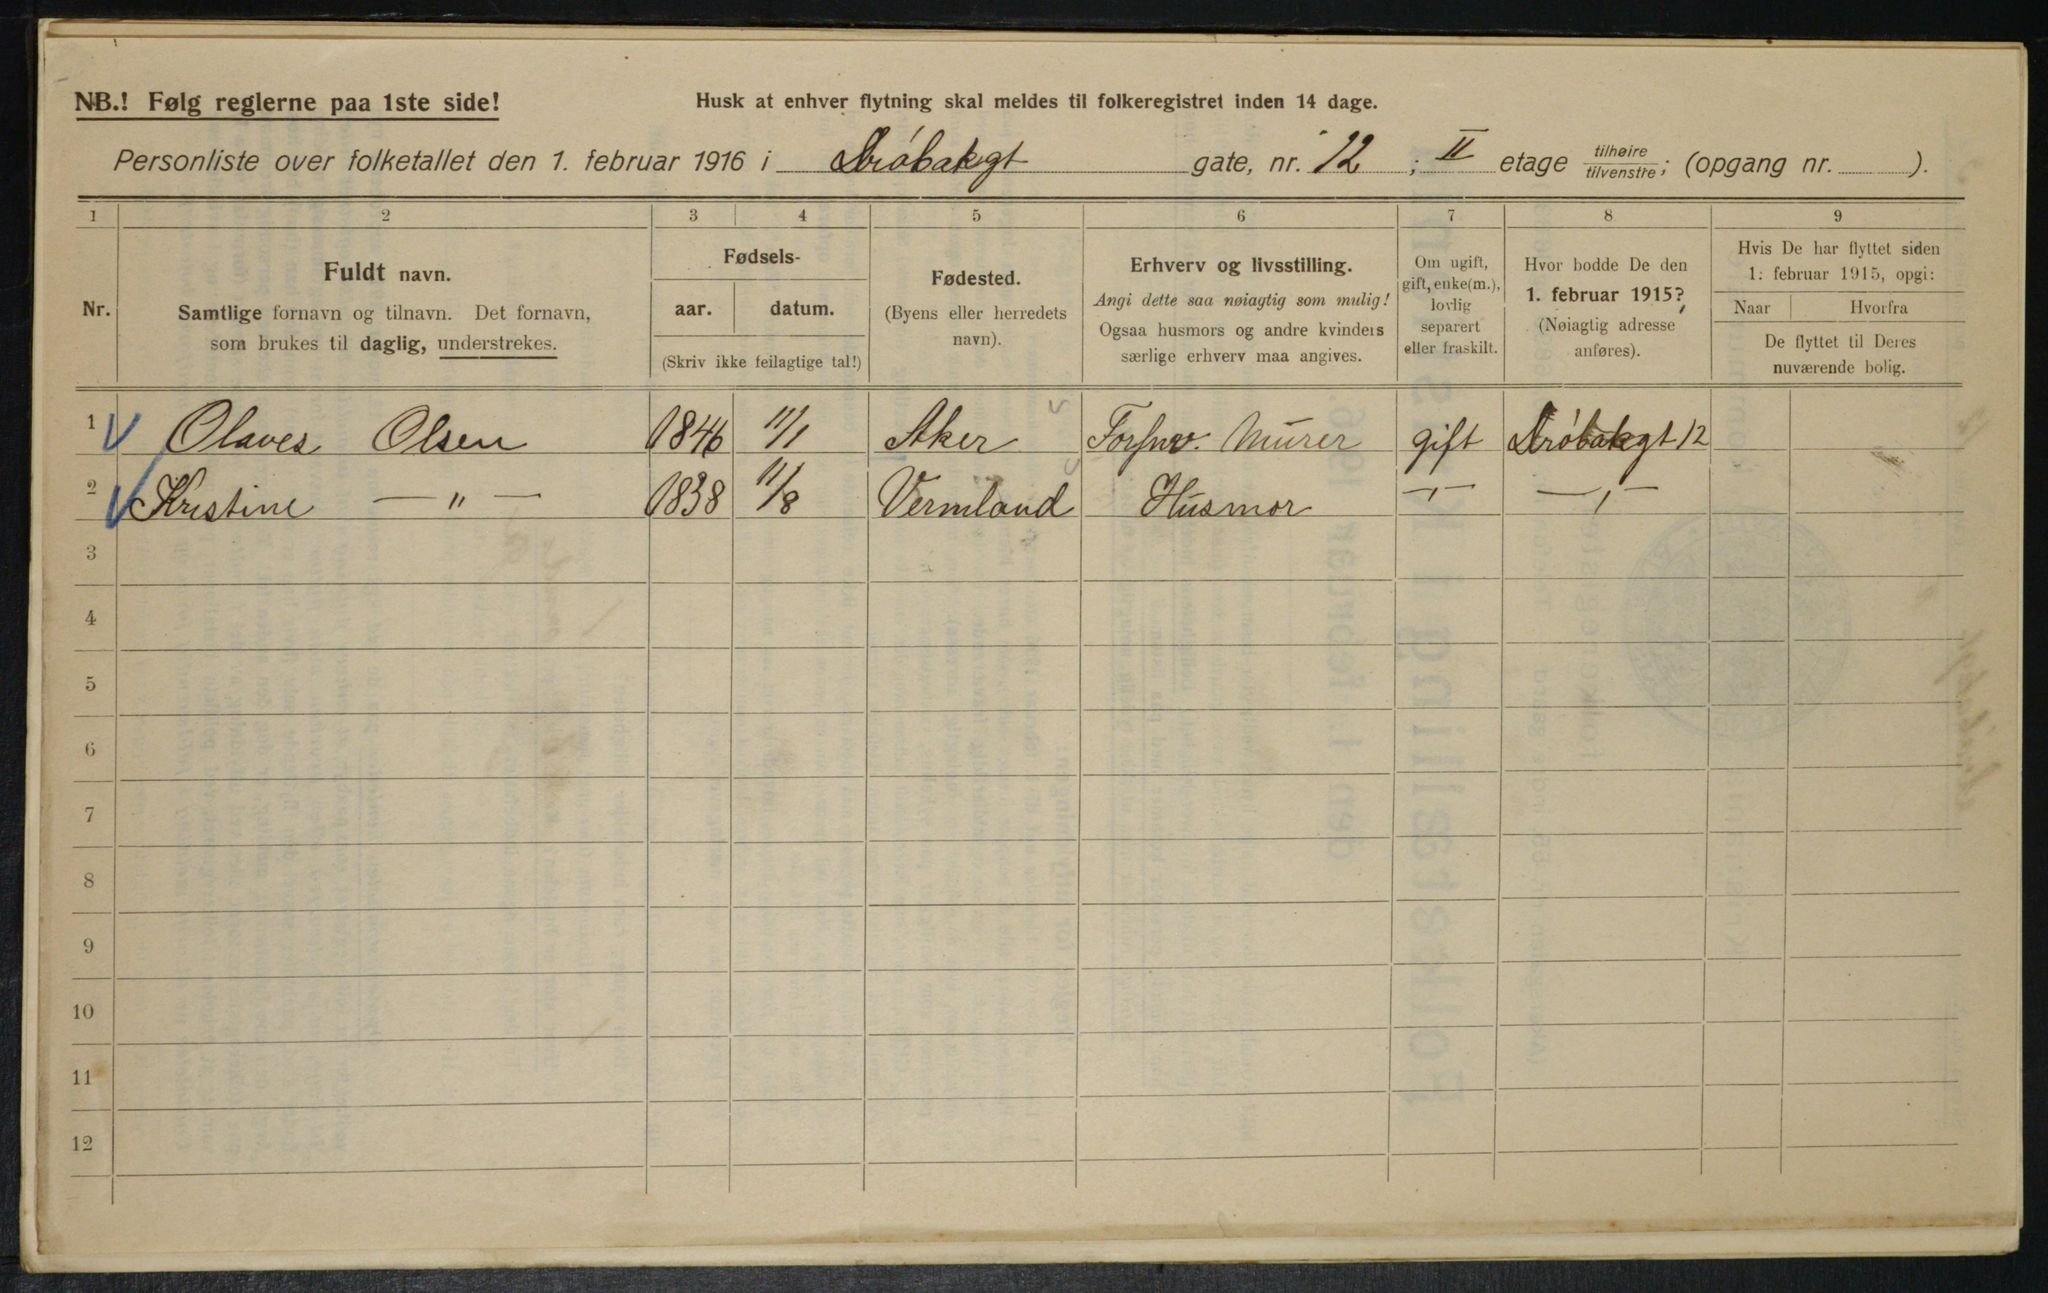 NB.! Følg reglerne paa 1ste side!
Husk at enhver flytning skal meldes til folkeregistret inden 14 dage.
Personliste over folketallet den 1. februar 1916 i Drøbakgt gate, nr. 12 ; II etage tilhøire/tilvenstre; (opgang nr. ).
1 2 3 4 5 6 7 8 9
Nr.
Fuldt navn.
Samtlige fornavn og tilnavn. Det fornavn,
som brukes til daglig, understrekes.
Fødsels-
aar. datum.
(Skriv ikke feilagtige tal!)
Fødested.
(Byens eller herredets
navn).
Erhverv og livsstilling.
Angi dette saa nøiagtig som mulig!
Ogsaa husmors og andre kvinders
særlige erhverv maa angives.
Om ugift,
gift, enke(m.),
lovlig
separert
eller fraskilt.
Hvor bodde De den
1. februar 1915?
(Nøiagtig adresse
anføres).
Hvis De har flyttet siden
1. februar 1915, opgi:
Naar Hvorfra
De flyttet til Deres
nuværende bolig.
1 Olaves Olsen 1846 11/1 Aker Forsørv. Murer gift Drøbakgt 12
2 Kristine — " — 1838 11/8 Vermland Husmor —„— —„—
3
4
5
6
7
8
9
10
11
12